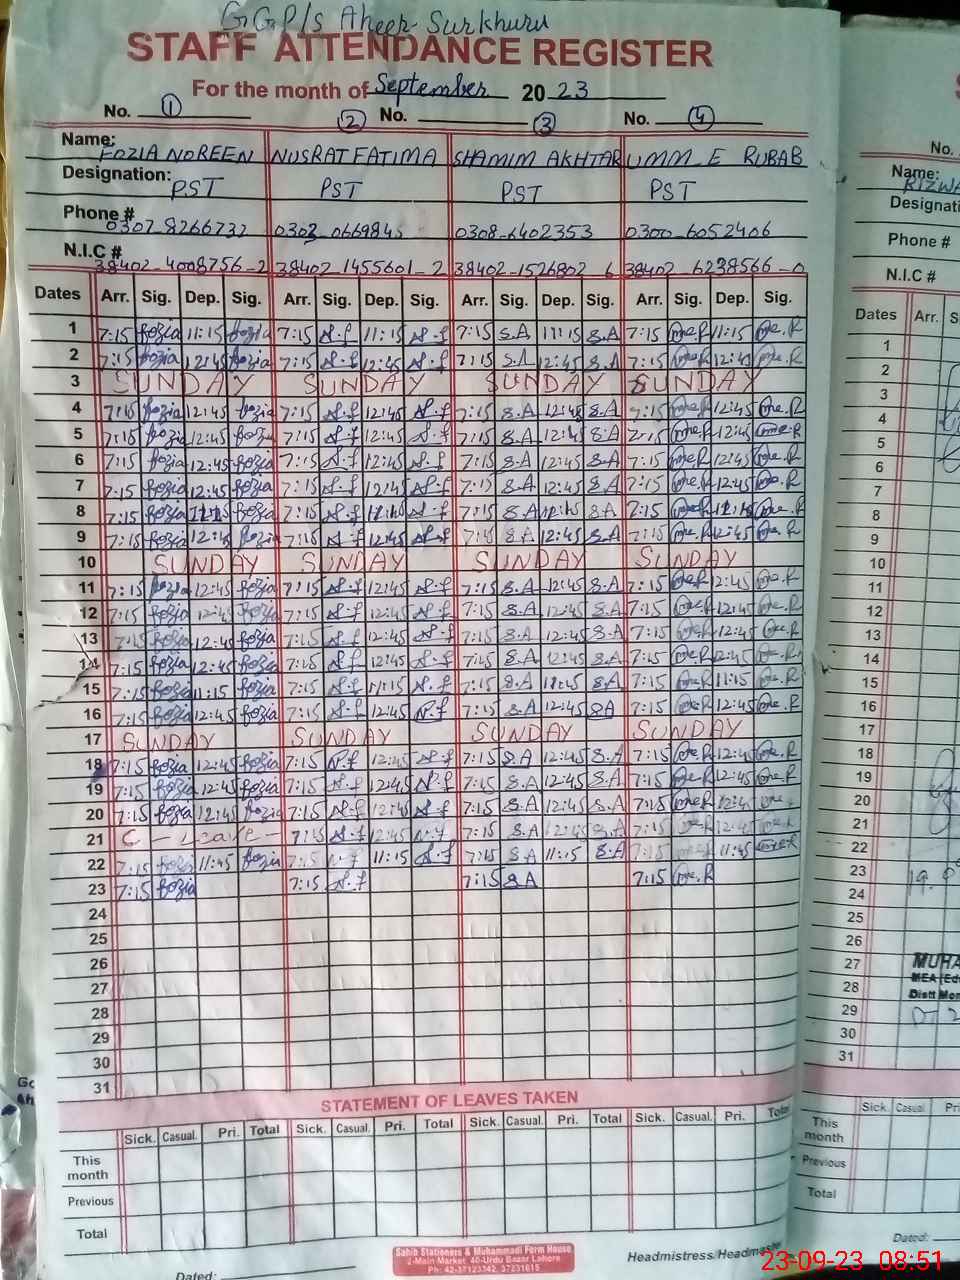 GGP/s Aheer Surkhuru
STAFF ATTENDANCE REGISTER
For the month of September 20 23
No. 1 2 No. 3 No. 4
Name: FOZIA NOREEN NUSRAT FATIMA SHAMIM AKHTAR UMM_E RUBAB
Designation: PST PST PST PST
Phone # 0307_8266732 0303_0669845 0308_6402353 0300_6052406
N.I.C # 38402_4008756_2 38402_1455601_2 38402_1526802_6 38402_6238566_0
Dates Arr. Sig. Dep. Sig. Arr. Sig. Dep. Sig. Arr. Sig. Dep. Sig. Arr. Sig. Dep. Sig.
1 7:15 fozia 11:15 fozia 7:15 N.f 11:15 N.f 7:15 S.A 11:15 S.A 7:15 11:15
2 7:15 fozia 12:45 fozia 7:15 N.f 12:45 N.f 7:15 S.A 12:45 S.A 7:15 12:45
3 SUNDAY SUNDAY SUNDAY SUNDAY
4 7:15 fozia 12:45 fozia 7:15 N.f 12:45 N.f 7:15 S.A 12:45 S.A 7:15 12:45
5 7:15 fozia 12:45 fozia 7:15 N.f 12:45 N.f 7:15 S.A 12:45 S.A 7:15 12:45
6 7:15 fozia 12:45 fozia 7:15 N.f 12:45 N.f 7:15 S.A 12:45 S.A 7:15 12:45
7 7:15 fozia 12:45 fozia 7:15 N.f 12:45 N.f 7:15 S.A 12:45 S.A 7:15 12:45
8 7:15 fozia fozia 7:15 N.f N.f 7:15 S.A S.A 7:15
9 7:15 fozia 12:45 fozia 7:15 N.f 12:45 N.f 7:15 S.A 12:45 S.A 7:15 12:45
10 SUNDAY SUNDAY SUNDAY SUNDAY
11 7:15 fozia 12:45 fozia 7:15 N.f 12:45 N.f 7:15 S.A 12:45 S.A 7:15 12:45
12 7:15 fozia 12:45 fozia 7:15 N.f 12:45 N.f 7:15 S.A 12:45 S.A 7:15 12:45
13 7:15 fozia 12:45 fozia 7:15 N.f 12:45 N.f 7:15 S.A 12:45 S.A 7:15 12:45
14 7:15 fozia 12:45 fozia 7:15 N.f 12:45 N.f 7:15 S.A 12:45 S.A 7:15 12:45
15 7:15 fozia 11:15 fozia 7:15 N.f 11:15 N.f 7:15 S.A S.A 7:15 11:15
16 7:15 fozia 12:45 fozia 7:15 N.f 12:45 N.f 7:15 S.A 12:45 S.A 7:15 12:45
17 SUNDAY SUNDAY SUNDAY SUNDAY
18 7:15 fozia 12:45 fozia 7:15 N.f 12:45 N.f 7:15 S.A 12:45 S.A 7:15 12:45
19 7:15 fozia 12:45 fozia 7:15 N.f 12:45 N.f 7:15 S.A 12:45 S.A 7:15 12:45
20 7:15 fozia 12:45 fozia 7:15 N.f 12:45 N.f 7:15 S.A 12:45 S.A 7:15 12:45
21 C - Leave - 7:15 N.f 12:45 N.f 7:15 S.A 12:45 S.A 7:15 12:45
22 7:15 fozia 11:45 fozia 7:15 N.f 11:15 N.f 7:15 S.A 11:15 S.A 7:15 11:45
23 7:15 fozia 7:15 N.f 7:15 S.A 7:15
24
25
26
27
28
29
30
31
STATEMENT OF LEAVES TAKEN
Sick. Casual. Pri. Total Sick. Casual. Pri. Total Sick. Casual. Pri. Total Sick. Casual. Pri. Total
This month
Previous
Total
Dated:
Sahib Stationers & Muhammadi Form House
2-Main Market, 40-Urdu Bazar Lahore
Ph: 42-37123342, 37231615
Headmistress/Headmaster
No.
Name: RIZWA
Designati
Phone #
N.I.C #
Dates Arr. S
1
2
3
4
5
6
7
8
9
10
11
12
13
14
15
16
17
18
19
20
21
22
23
24
25
26
27
28
29
30
31
MUHA
MEA (Edu
Distt Mon
Sick. Casual. Pri
This month
Previous
Total
Dated:
23-09-23 08:51